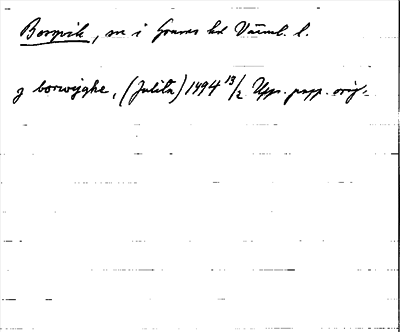 Borgvik, sn i Grums hd Värml. l.
g borwijghe, (Julita) 1494 13/2 Upp. papp. orig.